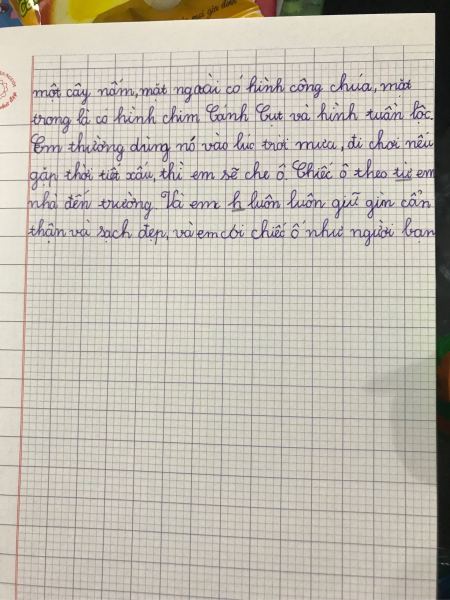 một cây nấm, mặt ngoài có hình công chúa, mặt
trong là có hình chim Cánh Cụt và hình tuần lộc.
Em thường dùng nó vào lúc trời mưa, đi chơi nếu
gặp thời tiết xấu, thì em sẽ che ô. Chiếc ô theo từ em
nhà đến trường. Và em h luôn luôn giữ gìn cẩn
thận và sạch đẹp, và em coi chiếc ô như người ban